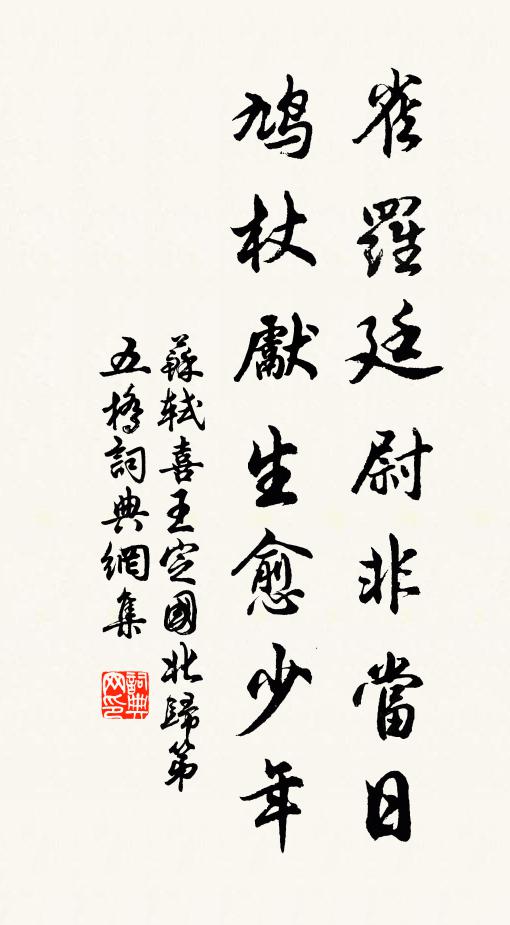 雀羅廷尉非當日
鳩杖獻生愈少年
蘇軾喜王定國北歸第
五橋詞典網集
詞典網印